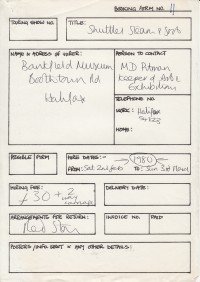 BOOKING FORM NO. 4
TOURING SHOW NO.
TITLE:
Shuttles Steam & Soot
NAME & ADDRESS OF HIRER:
Bankfield Museum
Boothtown Rd
Halifax
PERSON TO CONTACT
M.D. Pitman
Keeper of Art &
Exhibitions
TELEPHONE NO.
WORK: Halifax
54823
HOME:
POSSIBLE FIRM
HIRE DATES:-
1980
FROM: Sat 2nd Feb TO: Sun
HIRING FEE:
£30 + 2 way
carriage
DELIVERY DATE:
ARRANGEMENTS FOR RETURN:
INVOICE NO.
PAID
POSTERS/INFO. SHEET & ANY OTHER DETAILS: